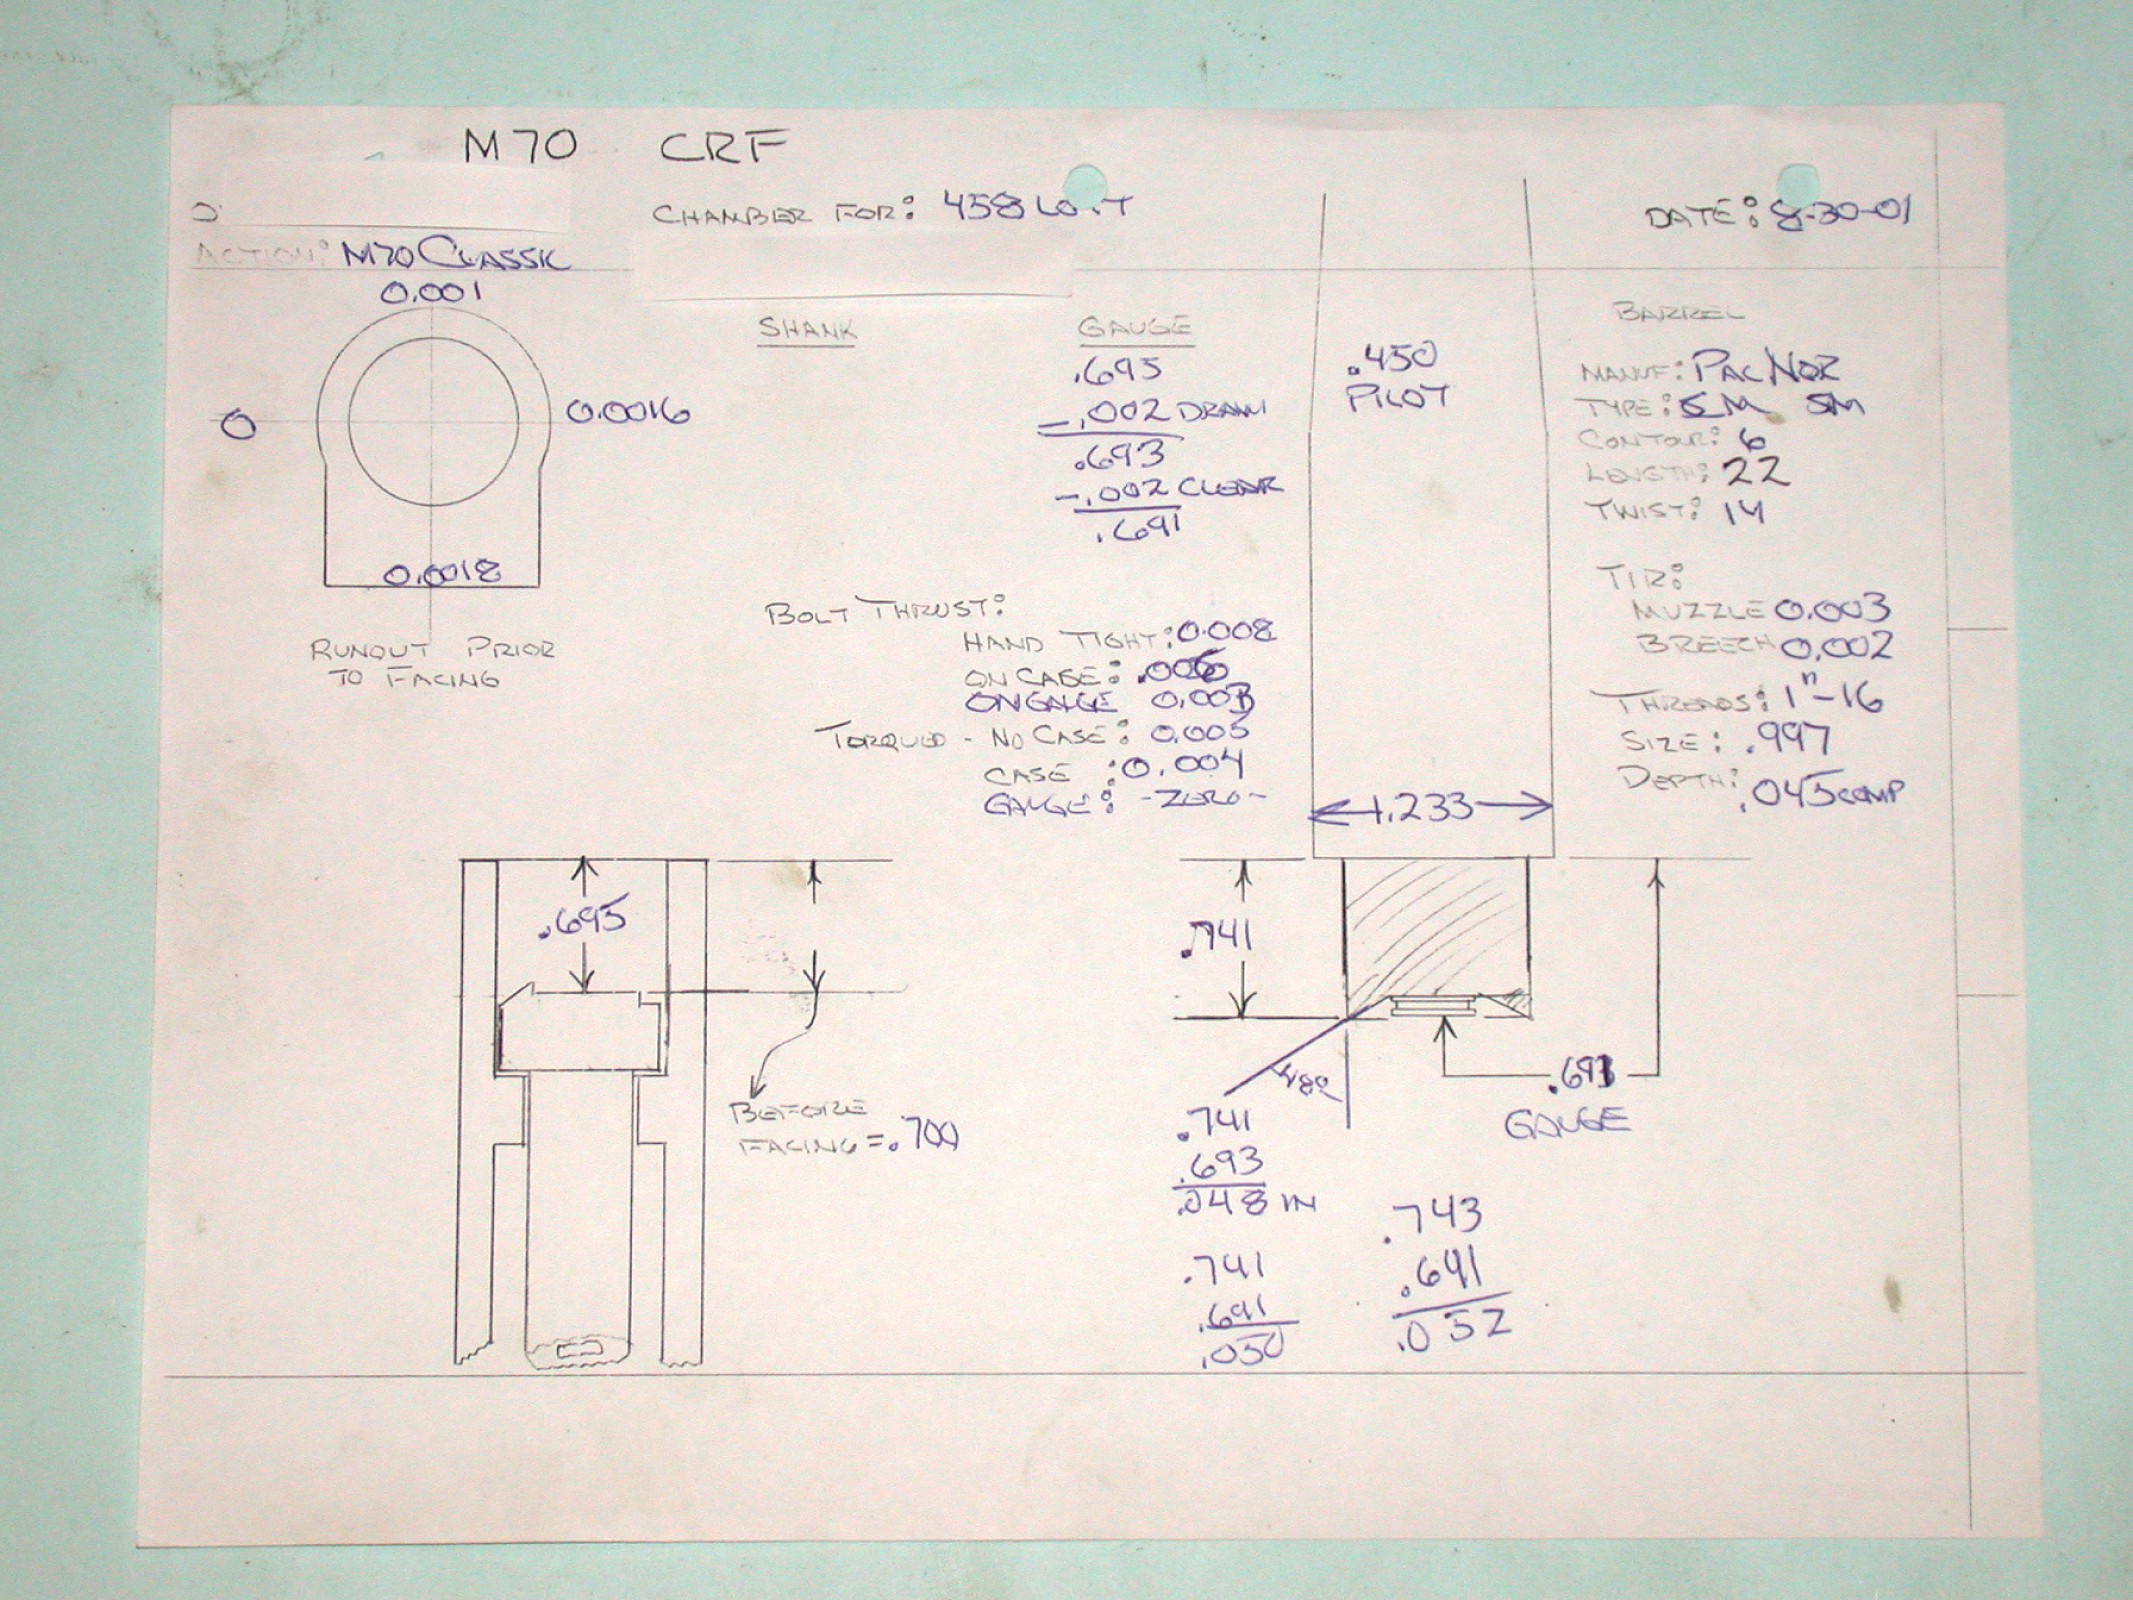 M70 CRF
CHAMBER FOR: 458
DATE: 8-30-01
ACTION: M70 CLASSIC
0.001
0
0.0016
0.0018
RUNOUT PRIOR
TO FACING
SHANK
GAUGE
.695
-.002 DRAW
.693
-.002 CLEAR
.691
.450
PILOT
BARREL
MANUF: PAC NOR
TYPE: SM
CONTOUR: 6
LENGTH: 22
TWIST: 14
TIR:
MUZZLE 0.003
BREECH 0.002
THREADS: 1"-16
SIZE: .997
DEPTH: .045 COMP
BOLT THRUST:
HAND TIGHT: 0.008
ON CASE:
ON GAGE 0.003
TORQUED - NO CASE: 0.005
CASE : 0.004
GAUGE: -ZERO-
1.233
.695
BEFORE
FACING = .700
.741
GAUGE
.741
.693
.048 IN
.741
.691
.050
.743
.691
.052